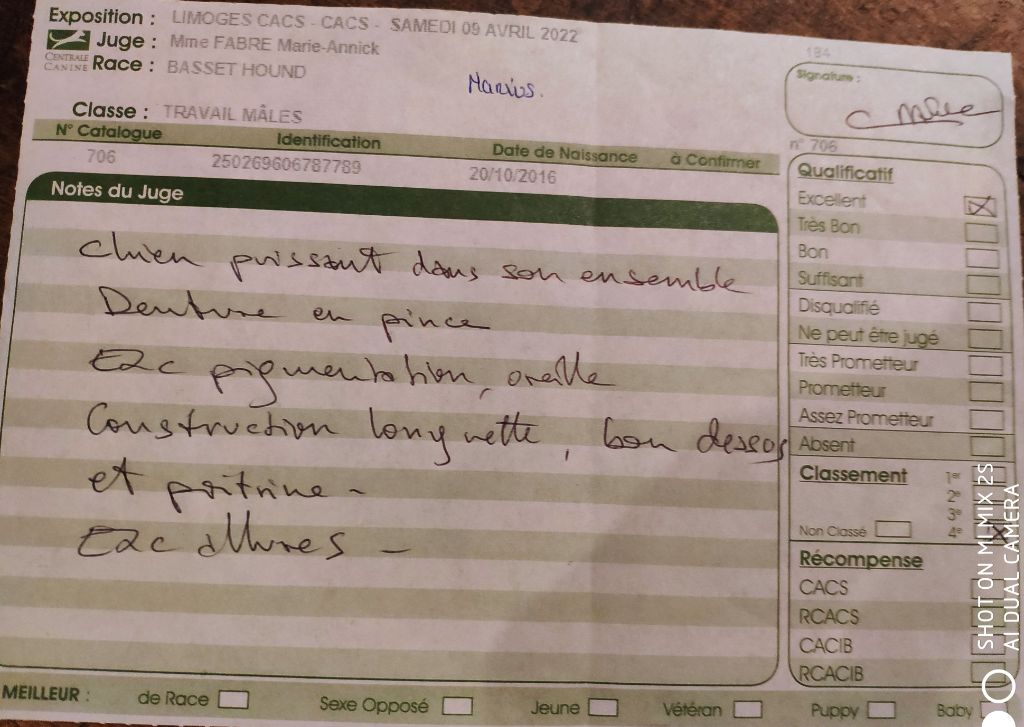 Exposition : LIMOGES CACS - CACS - SAMEDI 09 AVRIL 2022
Juge : Mme FABRE Marie-Annick
CENTRALE CANINE
Race : BASSET HOUND
Marius.
Classe : TRAVAIL MÂLES
N° Catalogue Identification Date de Naissance à Confirmer
706 250269606787789 20/10/2016
Notes du Juge
Chien puissant dans son ensemble
Denture en pince
Exc pigmentation, oreille
Construction longuette, bon dessus
et poitrine -
Exc allures -
194
Signature :
n° 706
Qualificatif
Excellent
Très Bon
Bon
Suffisant
Disqualifié
Ne peut être jugé
Très Prometteur
Prometteur
Assez Prometteur
Absent
Classement 1er
2e
3e
Non Classé 4e
Récompense
CACS
RCACS
CACIB
RCACIB
MEILLEUR : de Race Sexe Opposé Jeune Vétéran Puppy Baby
SHOT ON MI MIX 2S
AI DUAL CAMERA